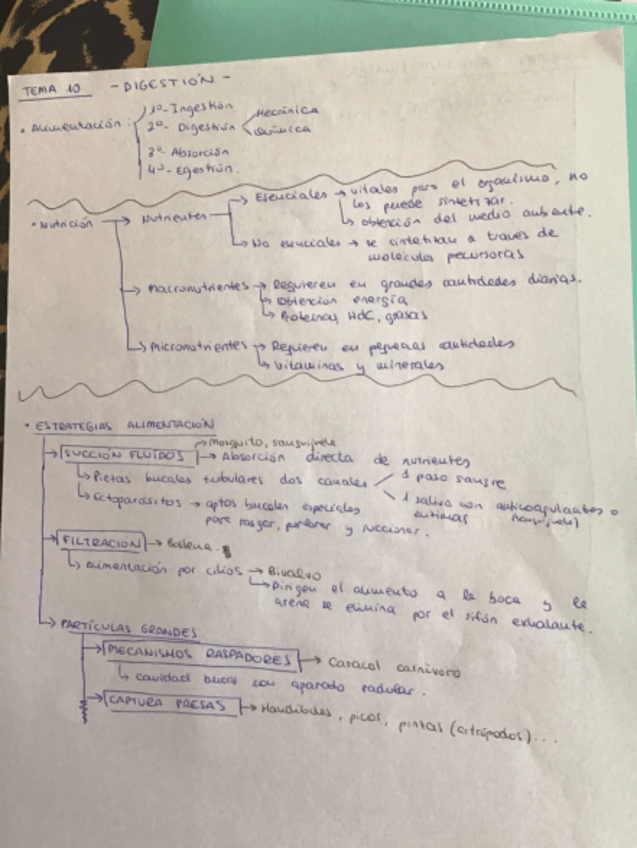 TEMA 10 - DIGESTIÓN -
• Alimentación: 1º- Ingestión
2º- Digestión Mecánica
Química
3º- Absorción
4º- Egestión.
• Nutrición → Nutrientes → Esenciales → vitales para el organismo, no
los puede sintetizar.
↳ obtención del medio ambiente.
↳ No esenciales → se sintetizan a través de
moléculas precursoras
→ Macronutrientes → Requieren en grandes cantidades diarias.
↳ Obtención energía
↳ Proteínas, HdC, grasas
→ Micronutrientes → Requieren en pequeñas cantidades
↳ Vitaminas y minerales
• ESTRATEGIAS ALIMENTACIÓN
→ Mosquito, sanguijuela
→ SUCCIÓN FLUIDOS → Absorción directa de nutrientes
↳ Piezas bucales tubulares dos canales 1 paso sangre
1 saliva con anticoagulantes o
enzimas (sanguijuela)
↳ Ectoparásitos → aptos bucales especiales
para rasgar, perforar y succionar.
→ FILTRACIÓN → Ballena.
↳ Alimentación por cilios → Bivalvo
↳ Dirigen el alimento a la boca y la
arena se elimina por el sifón exhalante.
→ PARTÍCULAS GRANDES
→ MECANISMOS RASPADORES → Caracol carnívoro
↳ cavidad bucal con aparato radular.
→ CAPTURA PRESAS → Mandíbulas, picos, pinzas (artrópodos)...